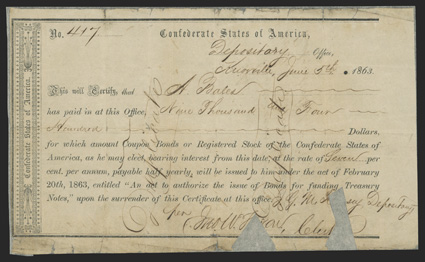 No. 417
Confederate States of America,
Depositary Office,
Knoxville, June 5th, 1863.
This will Certify, that A. Bales
has paid in at this Office, Nine Thousand Four
Hundred Dollars,
for which amount Coupon Bonds or Registered Stock of the Confederate States of
America, as he may elect, bearing interest from this date, at the rate of Seven per
cent. per annum, payable half yearly, will be issued to him under the act of February
20th, 1863, entitled "An act to authorize the issue of Bonds for funding Treasury
Notes," upon the surrender of this Certificate, at this office.
J. G. M. Depositary
per Clerk
Confederate States of America.